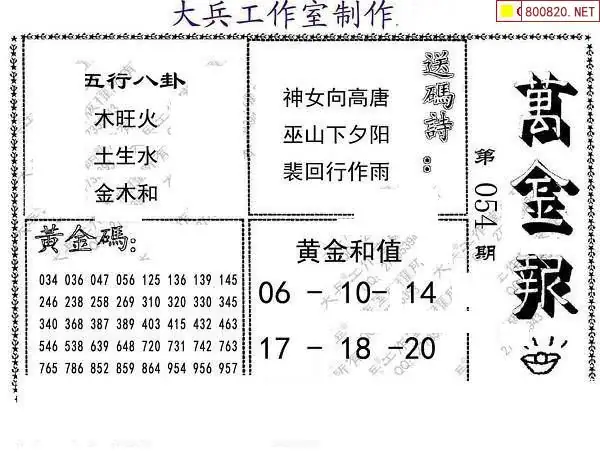 大兵工作室制作
800820.NET
五行八卦
木旺火
土生水
金木和
送碼詩：
神女向高唐
巫山下夕阳
裴回行作雨
萬金報
第054期
黃金碼：
034 036 047 056 125 136 139 145
246 238 258 269 310 320 330 345
340 368 387 389 403 415 432 463
546 538 639 648 720 731 742 763
765 786 852 859 864 954 956 957
黄金和值
06 - 10- 14
17 - 18 -20